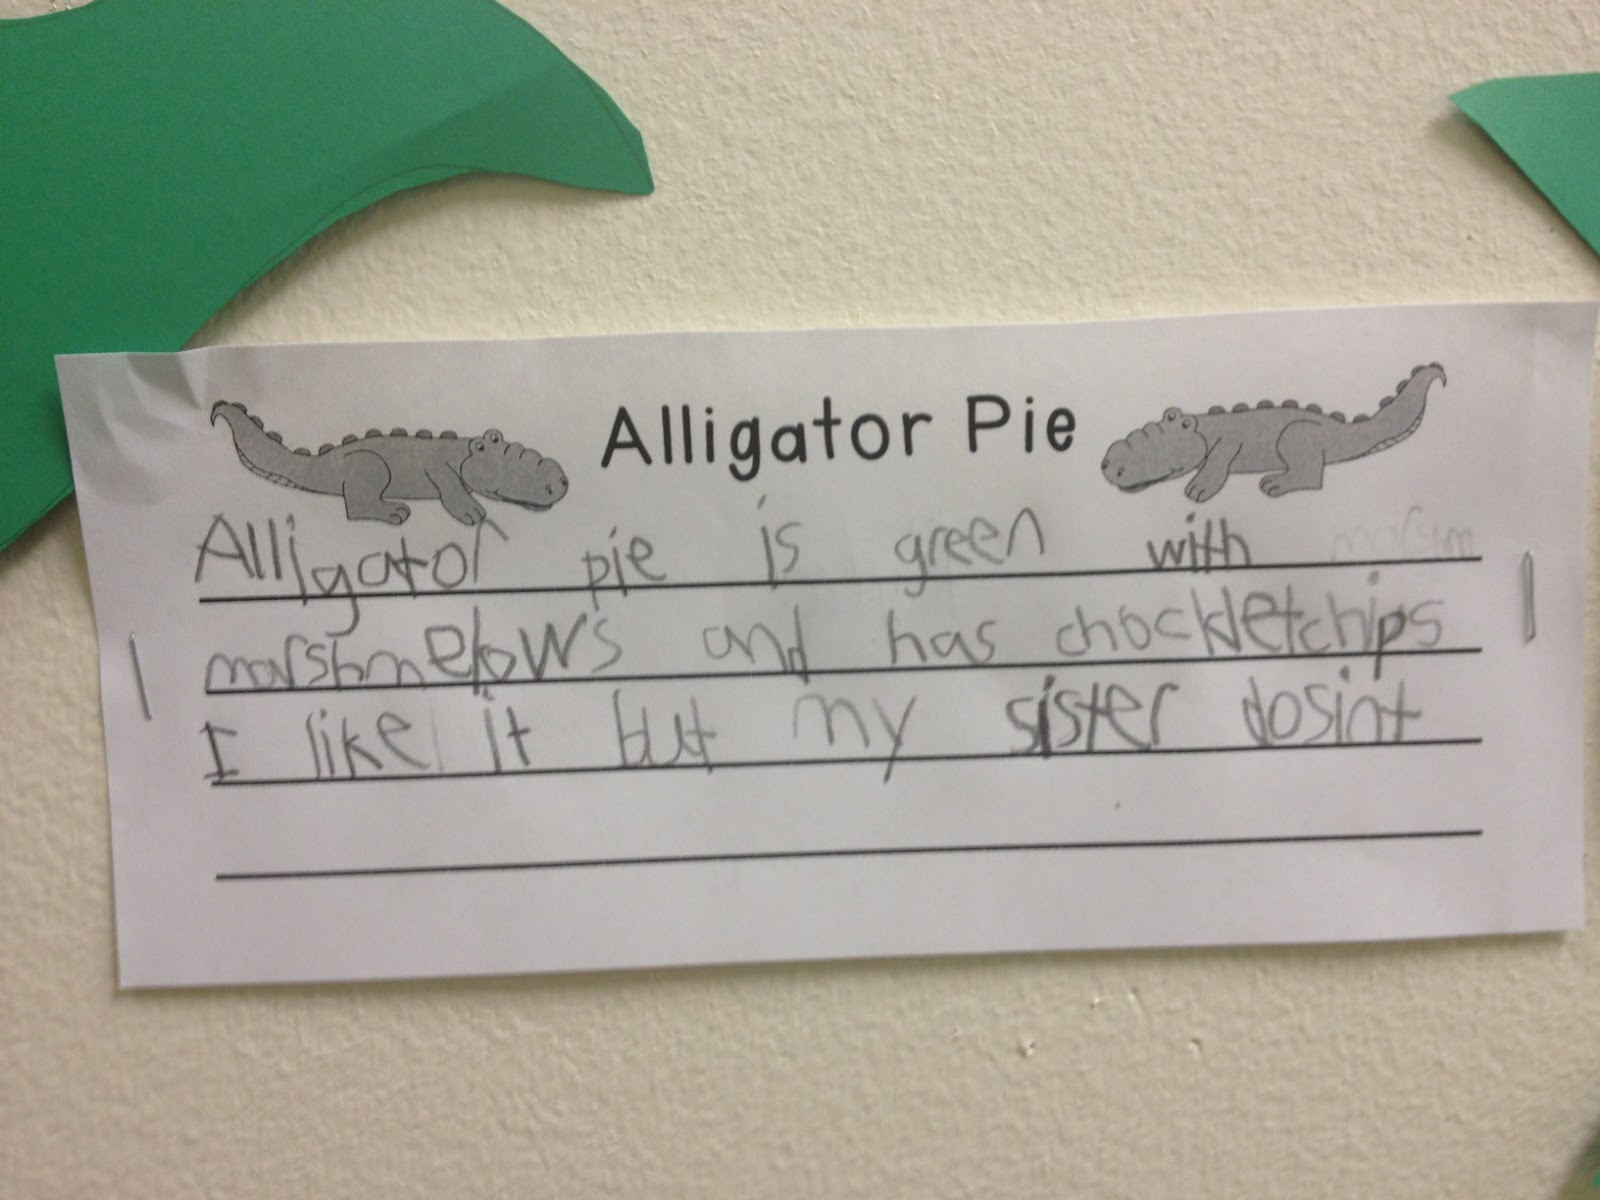 Alligator Pie
Alligator pie is green with marsm
marshmelows and has chockletchips
I like it but my sister dosint